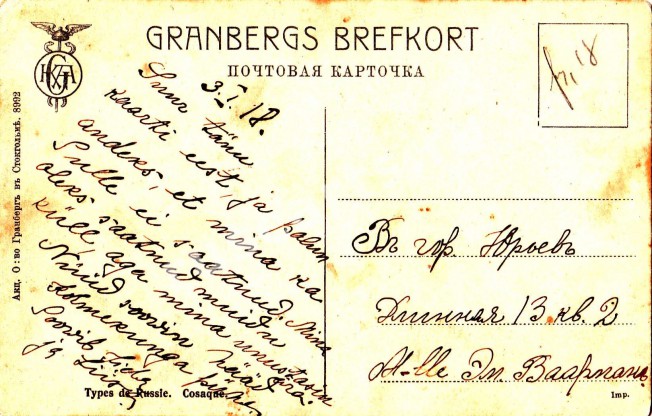 GRANBERGS BREFKORT
ПОЧТОВАЯ КАРТОЧКА
Акц. О:во Гранбергъ въ Стокгольмѣ. 8992
3. I. 18.
Suur tänu
kaarti eest, ja palun
andeks, et mina ka
Sulle ei saatnud. Mina
oleks saatnud muidu
küll aga mina unustasin ära.
Nüüd soovin hääd
kolmekuninga püha.
Soovib Lida
ja
Въ гор. Юрьевъ
13 кв. 2
M-lle Эл. Ваарманъ
Types de Russie. Cosaque.
Imp.